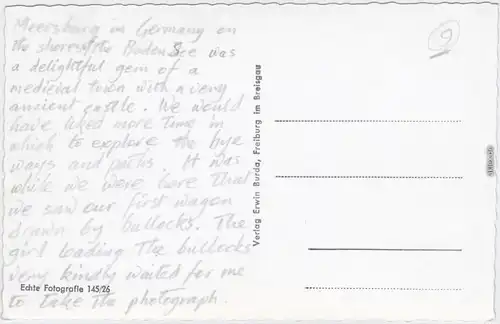 Meersburg in Germany on
the shore of the Boden See was
a delightful gem of a
medieval town with a very
ancient castle. We would
have liked more time in
which to explore the bye
ways and paths. It was
while we were here that
we saw our first wagon
drawn by bullocks. The
girl leading the bullocks
very kindly waited for me
to take the photograph.
Echte Fotografie 145/26
Verlag Erwin Burda, Freiburg im Breisgau
9